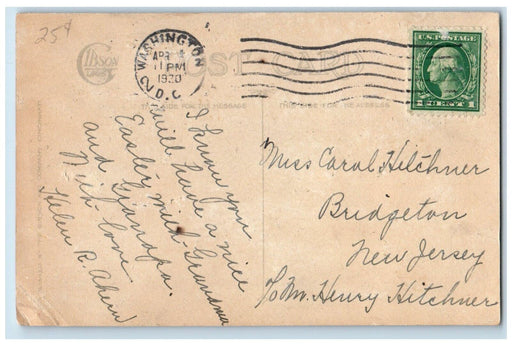 25¢
GIBSON
POST CARD
WASHINGTON
APR
1 PM
1920
D.C.
U.S. POSTAGE
1 CENT 1
THIS SIDE FOR THE MESSAGE
THIS SIDE FOR THE ADDRESS
I know you
will have a nice
Easter with Grandma
and Grandpa.
With love
Helen R.
Miss Carol Hitchner
Bridgeton
New Jersey
c/o Mr. Henry Hitchner